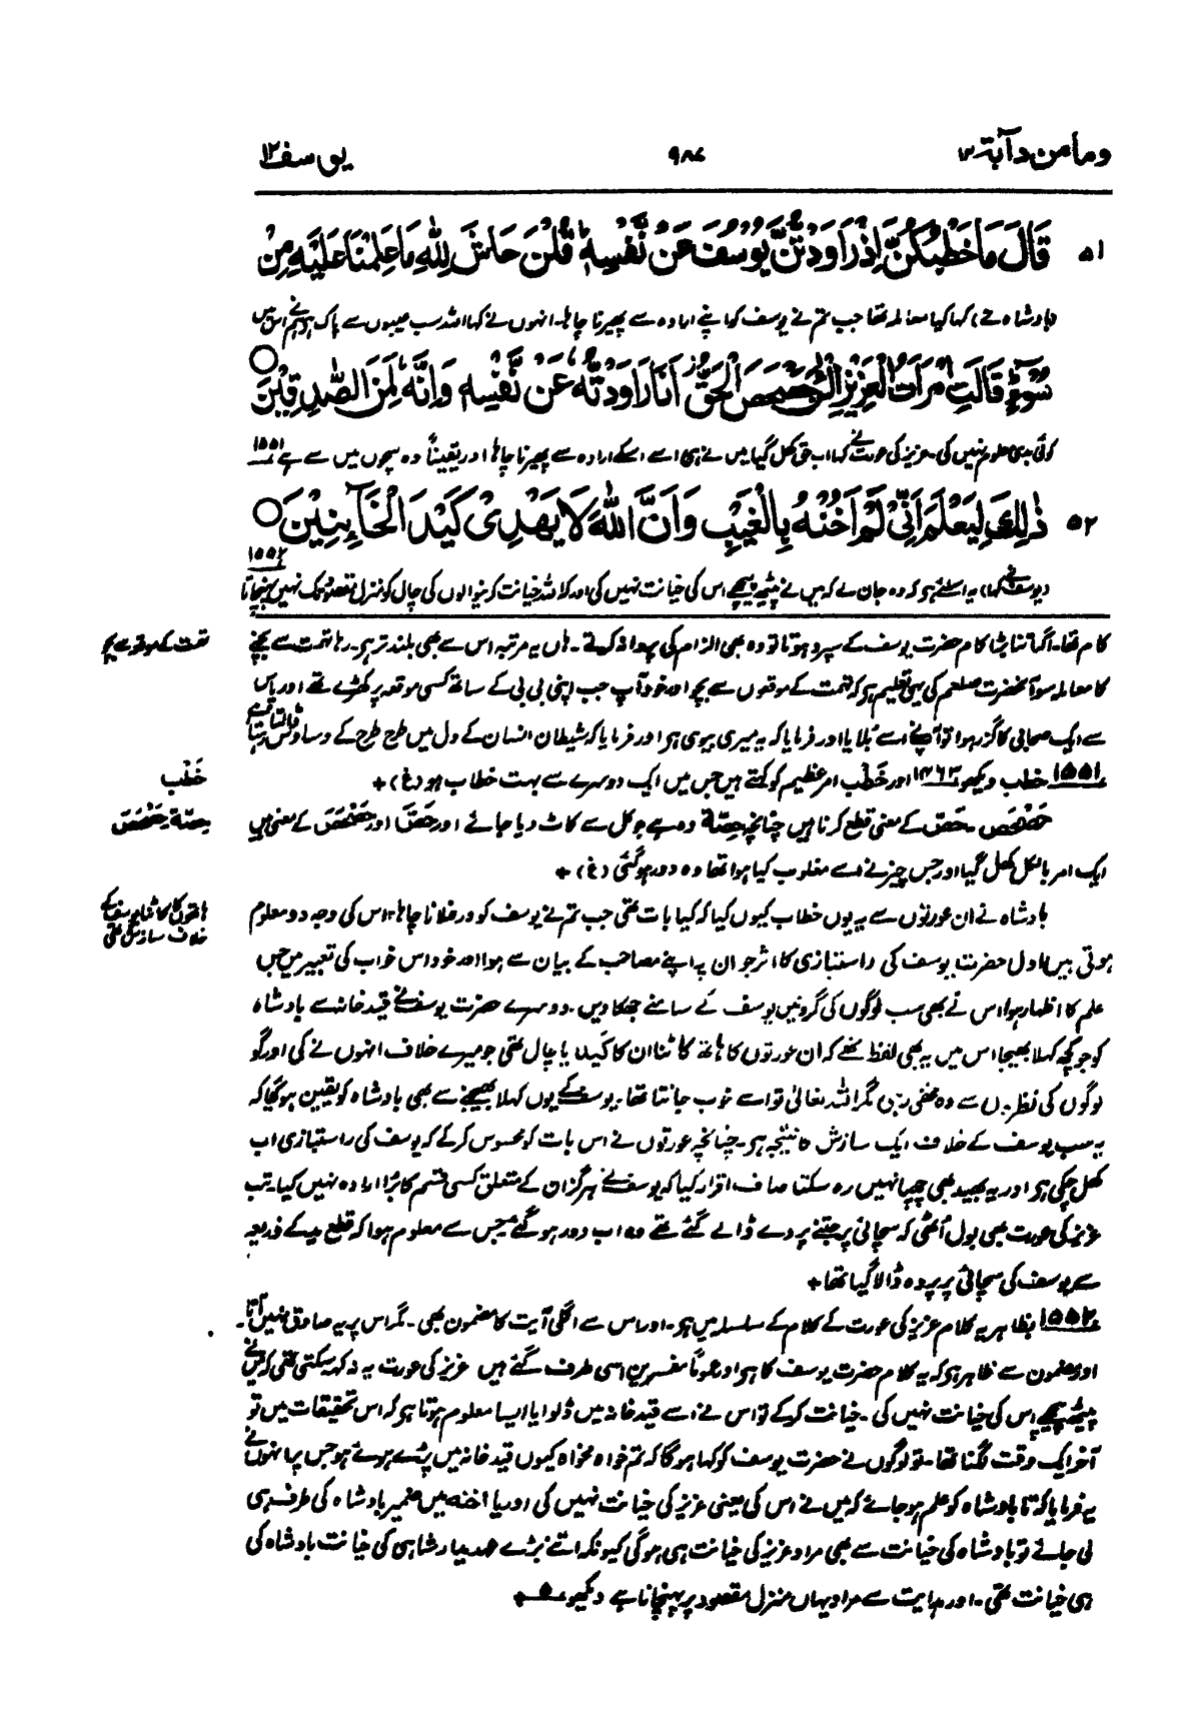 وما من دآبۃ ۱۲
۹۸۷
یوسف ۱۲
۵۱ قَالَ مَا خَطْبُكُنَّ اِذْ رَاوَدْتُّنَّ یُوْسُفَ عَنْ نَّفْسِهٖ ؕ قُلْنَ حَاشَ لِلّٰهِ مَا عَلِمْنَا عَلَیْهِ مِنْ
(بادشاہ نے) کہا کیا معاملہ تھا جب تم نے یوسف کو اپنے ارادہ سے پھیرنا چاہا۔ انہوں نے کہا اللہ سب عیبوں سے پاک ہو ہم نے اس میں
سُوْٓءٍ ؕ قَالَتِ امْرَاَتُ الْعَزِیْزِ الْـٰٔنَ حَصْحَصَ الْحَقُّ ؗ اَنَا رَاوَدْتُّهٗ عَنْ نَّفْسِهٖ وَاِنَّهٗ لَمِنَ الصّٰدِقِیْنَ ○
کوئی بدی معلوم نہیں کی۔ عزیز کی عورت نے کہا اب حق کھل گیا میں نے ہی اسے اسکے ارادہ سے پھیرنا چاہا اور یقیناً وہ سچوں میں سے ہے ۱۵۵۱
۵۲ ذٰلِكَ لِیَعْلَمَ اَنِّیْ لَمْ اَخُنْهُ بِالْغَیْبِ وَاَنَّ اللّٰهَ لَا یَهْدِیْ كَیْدَ الْخَآىِٕنِیْنَ ○
۱۵۵۲
(یوسف نے کہا) یہ اسلئے ہو کہ وہ جان لے کہ میں نے پیٹھ پیچھے اس کی خیانت نہیں کی اور کہ اللہ خیانت کرنیوالوں کی چال کو منزل مقصود تک نہیں پہنچاتا
کام تھا۔ اگر اتنا بڑا کام حضرت یوسف کے سپرد ہوتا تو وہ بھی الزام کی پروا نہ کرتے۔ ہاں یہ مرتبہ اس سے بھی بلند تر ہو۔ رہا تہمت سے بچنے
تہمت کے موقعہ سے بچو
کا معاملہ سو آنحضرت صلعم کی یہی تعلیم ہو کہ تہمت کے موقعوں سے بچو اور خود آپ جب اپنی بی بی کے ساتھ کسی موقعہ پر کھڑے تھے اور پاس
سے ایک صحابی کا گزر ہوا تو آپ نے اسے بلایا اور فرمایا کہ یہ میری بیوی ہو اور فرمایا کہ شیطان انسان کے دل میں طرح طرح کے وساوس ڈالتا رہتا ہے
۱۵۵۱ خطب دیکھو ۱۴۶۳ اور خَطْب امر عظیم کو کہتے ہیں جس میں ایک دوسرے سے بہت خطاب ہو (غ) +
خَطْب
حَصْحَصَ۔ حَصّ کے معنی قطع کرنا ہیں چنانچہ حِصَّۃ وہ ہے جو کل سے کاٹ دیا جائے اور حَصَّ اور حَصْحَصَ کے معنی ہیں
حِصّة حَصْحَصَ
ایک امر بالکل کھل گیا اور جس چیز نے اسے مغلوب کیا ہوا تھا وہ دور ہو گئی (غ) +
بادشاہ نے ان عورتوں سے یہ یوں خطاب کیوں کیا کہ کیا بات تھی جب تم نے یوسف کو ورغلانا چاہا؟ اس کی وجہ دو معلوم
ہاتھوں کا کاٹنا یوسف کے
خلاف سازش تھی
ہوتی ہیں اول حضرت یوسف کی راستبازی کا اثر جو ان پر اپنے مصاحب کے بیان سے ہوا اور خود اس خواب کی تعبیر میں جس
علم کا اظہار ہوا اس نے بھی سب لوگوں کی گردنیں یوسف کے سامنے جھکا دیں۔ دوسرے حضرت یوسف نے قید خانہ سے بادشاہ
کو جو کچھ کہلا بھیجا اس میں یہ بھی لفظ تھے کہ ان عورتوں کا ہاتھ کاٹنا ان کا کید یا چال تھی جو میرے خلاف انہوں نے کی اور گو
لوگوں کی نظروں سے وہ مخفی رہی مگر اللہ تعالیٰ تو اسے خوب جانتا تھا۔ یوسف کے یوں کہلا بھیجنے سے بھی بادشاہ کو یقین ہو گیا کہ
یہ سب یوسف کے خلاف ایک سازش کا نتیجہ ہو۔ چنانچہ عورتوں نے اس بات کو محسوس کر کے کہ یوسف کی راستبازی اب
کھل چکی ہو اور یہ بھید بھی چھپا نہیں رہ سکتا صاف اقرار کیا کہ یوسف نے ہرگز ان کے متعلق کسی قسم کا برا ارادہ نہیں کیا۔ تب
عزیز کی عورت بھی بول اٹھی کہ سچائی پر جتنے پردے ڈالے گئے تھے وہ اب دور ہو گئے جس سے معلوم ہوا کہ قطع ید کے ذریعہ
سے یوسف کی سچائی پر پردہ ڈالا گیا تھا +
۱۵۵۲ بظاہر یہ کلام عزیز کی عورت کے کلام کے سلسلہ میں ہو۔ اور اس سے اگلی آیت کا مضمون بھی۔ مگر اس پر یہ صادق نہیں آتا۔
اور مضمون سے ظاہر ہو کہ یہ کلام حضرت یوسف کا ہو اور عموماً مفسرین اسی طرف گئے ہیں عزیز کی عورت یہ نہ کہہ سکتی تھی کہ میں نے
پیٹھ پیچھے اس کی خیانت نہیں کی۔ خیانت کر کے تو اس نے اسے قید خانہ میں ڈلوایا ایسا معلوم ہوتا ہو کہ اس تحقیقات میں تو
آخر ایک وقت لگنا تھا۔ تو لوگوں نے حضرت یوسف کو کہا ہوگا کہ تم خواہ مخواہ کیوں قید خانہ میں پڑے ہوئے ہو جس پر انہوں نے
یہ فرمایا کہ تا بادشاہ کو علم ہو جائے کہ میں نے اس کی یعنی عزیز کی خیانت نہیں کی اور یا اخنه میں ضمیر بادشاہ کی طرف ہی
لی جائے تو بادشاہ کی خیانت سے بھی مراد عزیز کی خیانت ہی ہوگی کیونکہ اتنے بڑے عہدیدار شاہی کی خیانت بادشاہ کی
ہی خیانت تھی۔ اور ہدایت سے مراد یہاں منزل مقصود پر پہنچانا ہے دیکھو ۵ +